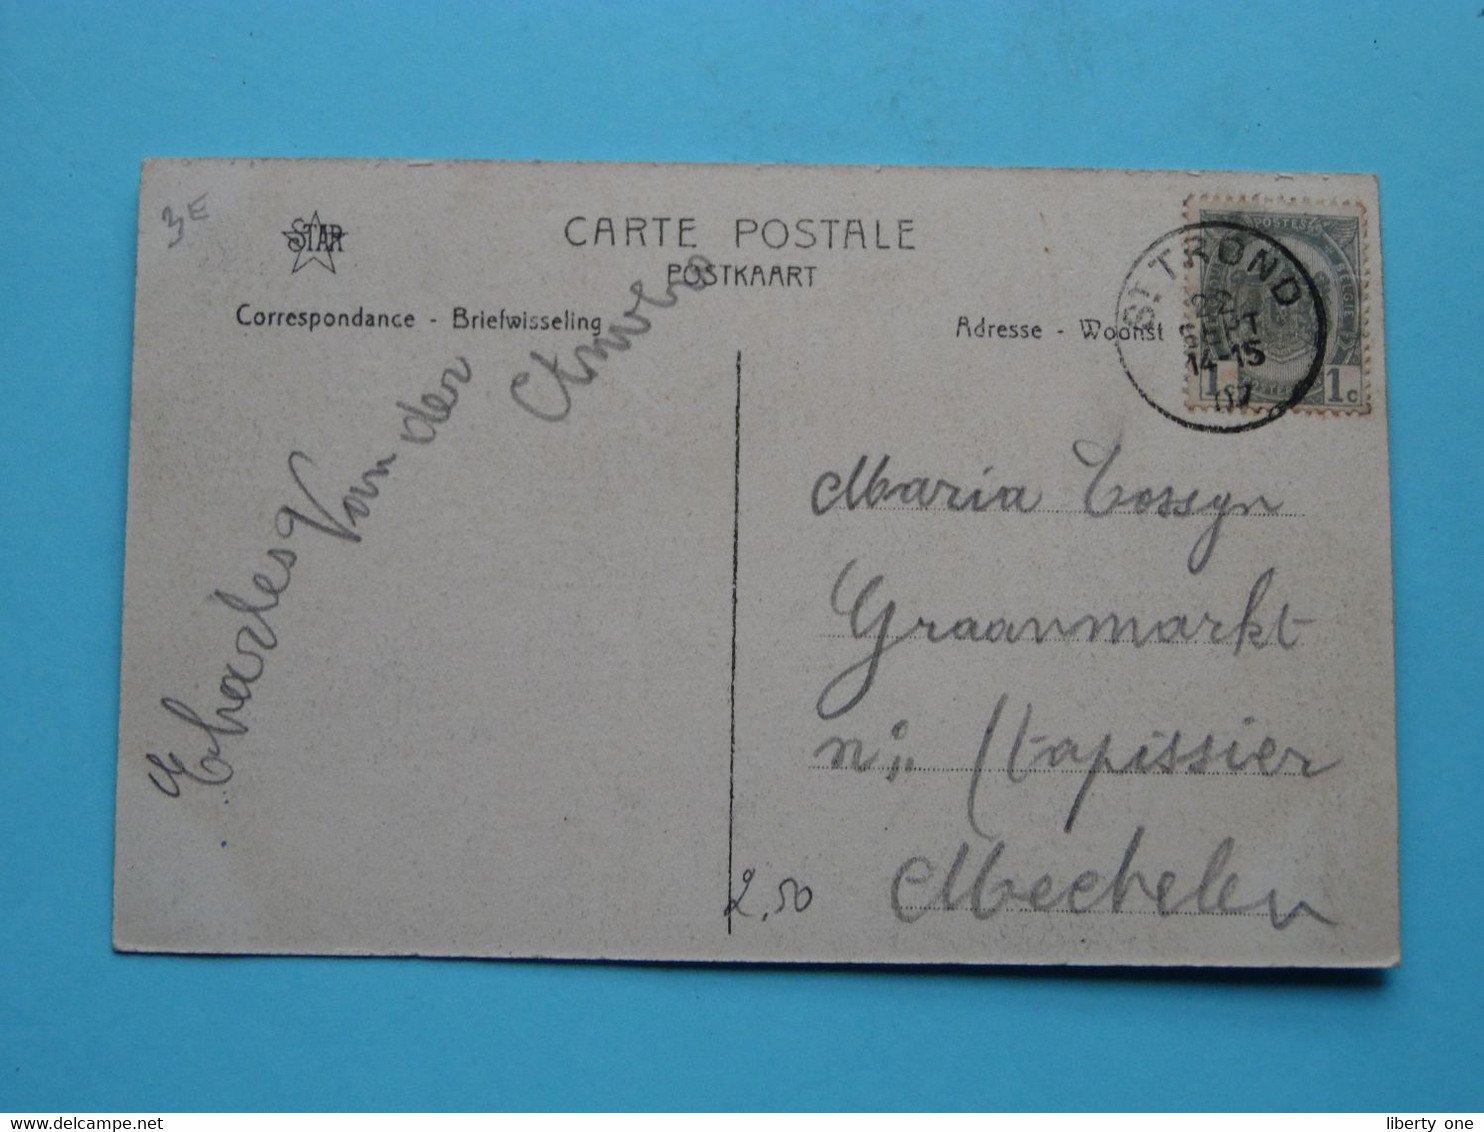 3E
STAR
CARTE POSTALE
POSTKAART
Correspondance - Briefwisseling
Adresse - Woonst
POSTES
BELGIQUE
1 1c
ST TROND
22
SEPT
14-15
07
Charles Van der
Maria Tossyn
Graanmarkt
n: 1 tapissier
Mechelen
2,50
liberty one